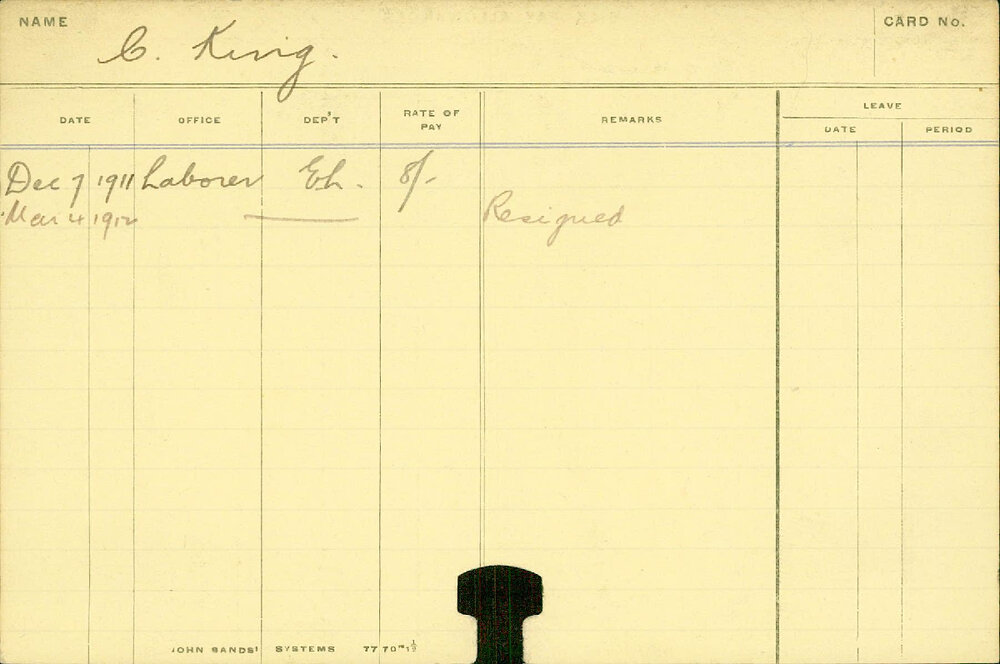 NAME C. King. CARD No.
LEAVE
DATE OFFICE DEP'T RATE OF PAY REMARKS DATE PERIOD
Dec 7 1911 Laborer Eh. 8/-
Mar 4 1912 Resigned
JOHN SANDS' SYSTEMS